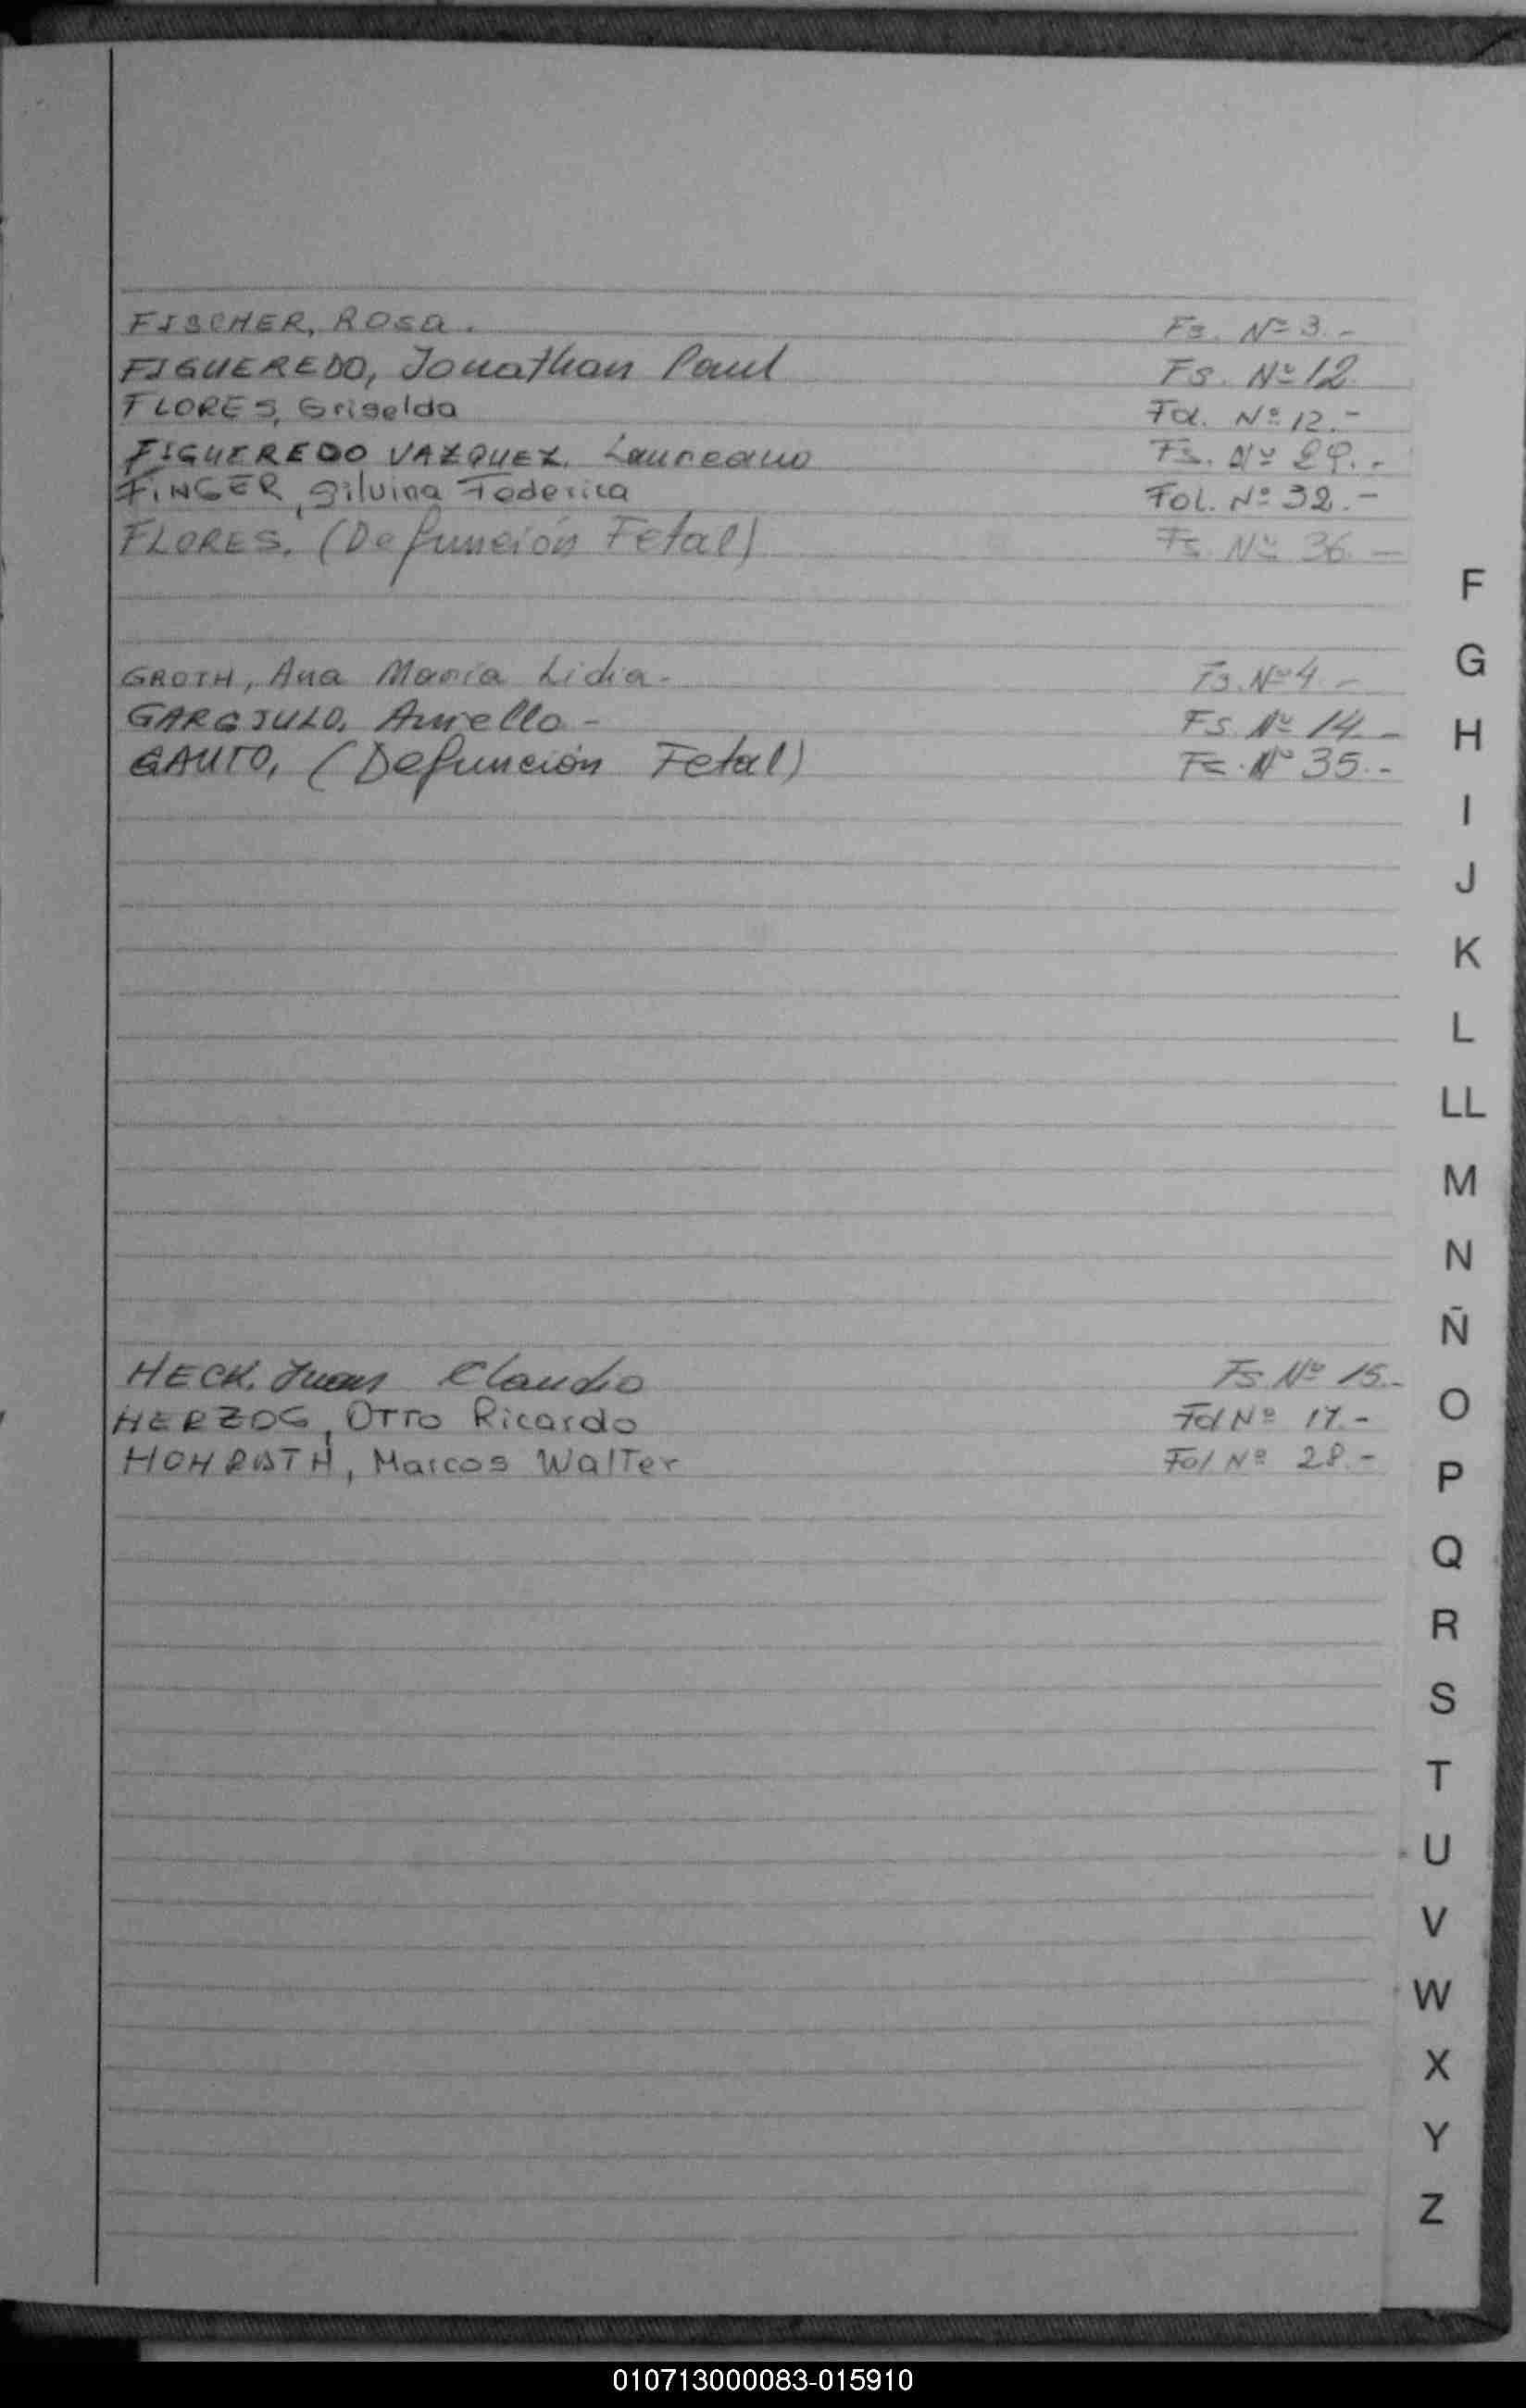 FISCHER, Rosa. Fs. Nº 3.-
FIGUEREDO, Jonathan Paul Fs. Nº 12
FLORES, Griselda Fol. Nº 12.-
FIGUEREDO VAZQUEZ, Laureano Fs. Nº 29.-
FINGER, Silvina Federica Fol. Nº 32.-
FLORES, (Defunción Fetal) Fs. Nº 36.-
F
G
GROTH, Ana María Lidia.- Fs. Nº 4.-
GARGIULO, Aurelio.- Fs. Nº 14.-
H
GAUTO, (Defunción Fetal) Fs. Nº 35.-
I
J
K
L
LL
M
N
Ñ
HECK, Juan Claudio Fs Nº 15.-
O
HERZOG, Otto Ricardo Fol Nº 17.-
HOHRATH, Marcos Walter Fol Nº 28.-
P
Q
R
S
T
U
V
W
X
Y
Z
010713000083-015910